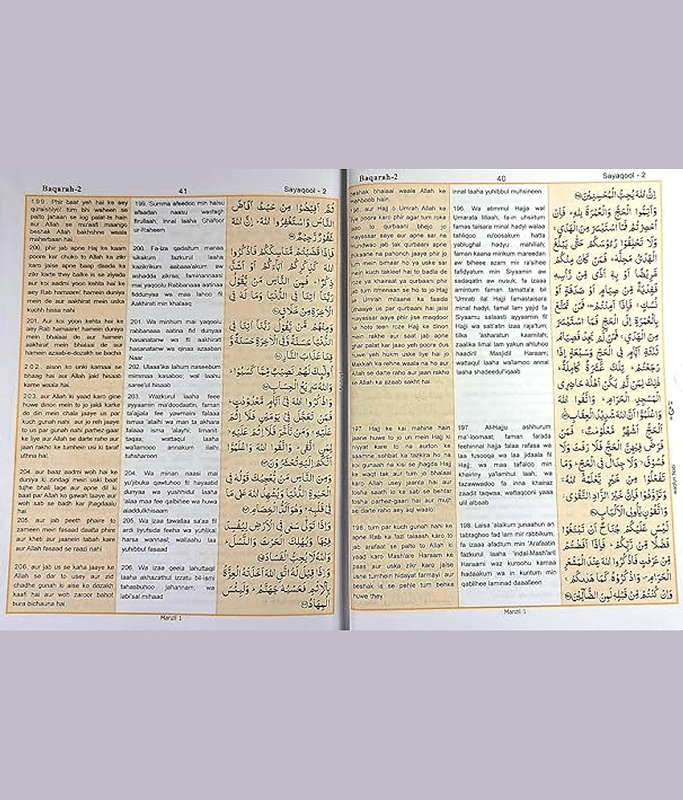 Baqarah-2
40
Sayaqool - 2
beshak bhalaai waale Allah ke
mahboob hain.
196. aur Hajj o Umrah Allah ke
liye poora karo phir agar tum roke
jaao to qurbani bhejo jo
mayassar aaye aur apne sar na
mundwao jab tak qurbaani apne
thikaane na pahonch jaaye phir jo
tum mein bimaar ho ya uske sar
mein kuch takleef hai to badla de
roze ya khairaat ya qurbaani phir
jab tum itmenaan se ho to jo Hajj
se Umrah milaane ka faaida
uthaaye us par qurbaani hai jaisi
mayassar aaye phir jise maqdoor
na ho to teen roze Hajj ke dinon
mein rakhe aur saat jab apne
ghar palat kar jaao yeh poore dus
huwe yeh hukm uske liye hai jo
Makkah ka rehne wala na ho aur
Allah se darte raho aur jaan rakho
ke Allah ka azaab sakht hai
197. Hajj ke kai mahine hain
jaane huwe to jo un mein Hajj ki
niyyat kare to na aurton ke
saamne sohbat ka tazkira ho na
koi gunaah na kisi se jhagda Hajj
ke waqt tak aur tum jo bhalaai
karo Allah usey jaanta hai aur
tosha saath lo ke sab se behtar
tosha parhez-gaari hai aur mujh
se darte raho aey aql waalo
198. tum par kuch gunah nahi ke
apne Rab ka fazl talaash karo to
jab arafaat se palto to Allah ki
yaad karo Mash'are Haraam ke
paas aur uska zikr karo jaise
usne tumhein hidayat farmayi aur
beshak is se pehle tum behke
huwe they.
innal laaha yuhibbul muhsineen
196. Wa atimmul Hajja wal
Umarata lillaah; fa-in uhsirtum
famas taisara minal hadyi walaa
tahliqoo ru'oosakum hatta
yablughal hadyu mahillah;
faman kaana minkum mareedan
aw biheee azam mir ra'sihee
fafidyatum min Siyaamin aw
sadaqatin aw nusuk; fa izaaa
amintum faman tamatta'a bil
'Umrati ilal Hajji famastaisara
minal hadyi, famal lam yajid fa
Siyaamu salaasti ayyaamin fil
Hajji wa sab'atin izaa raja'tum;
tilka 'asharatun kaamilah;
zaalika limal lam yakun ahluhoo
haadiril Masjidil Haraam;
wattaqul laaha wa'lamoo annal
laaha shadeedul'iqaab
197. Al-Hajju ashhurum
ma'-loomaat; faman farada
feehinnal hajja falaa rafasa wa
laa fusooqa wa laa jidaala fil
Hajj; wa maa taf'aloo min
khairiny ya'lamhul laah; wa
tazawwadoo fa inna khairaz
zaadit taqwaa; wattaqooni yaaa
ulil albaab
198. Laisa 'alaikum junaahun an
tabtaghoo fad lam mir rabbikum;
fa izaaa afadtum min 'Arafaatin
fazkurul laaha 'indal-Mash'aril
Haraami waz kuroohu kamaa
hadaakum wa in kuntum min
qablihee laminad daaalleen
اِنَّ اللّٰهَ يُحِبُّ الْمُحْسِنِيْنَ
وَاَتِمُّوا الْحَجَّ وَالْعُمْرَةَ لِلّٰهِ ۚ فَاِنْ
اُحْصِرْتُمْ فَمَا اسْتَيْسَرَ مِنَ الْهَدْيِ ۚ
وَلَا تَحْلِقُوْا رُءُوْسَكُمْ حَتّٰى يَبْلُغَ
الْهَدْيُ مَحِلَّهٗ ۚ فَمَنْ كَانَ مِنْكُمْ
مَّرِيْضًا اَوْ بِهٖٓ اَذًى مِّنْ رَّاْسِهٖ
فَفِدْيَةٌ مِّنْ صِيَامٍ اَوْ صَدَقَةٍ اَوْ
نُسُكٍ ۚ فَاِذَآ اَمِنْتُمْ ۥ فَمَنْ تَمَتَّعَ
بِالْعُمْرَةِ اِلَى الْحَجِّ فَمَا اسْتَيْسَرَ
مِنَ الْهَدْيِ ۚ فَمَنْ لَّمْ يَجِدْ فَصِيَامُ
ثَلٰثَةِ اَيَّامٍ فِى الْحَجِّ وَسَبْعَةٍ اِذَا
رَجَعْتُمْ ؕ تِلْكَ عَشَرَةٌ كَامِلَةٌ ؕ
ذٰلِكَ لِمَنْ لَّمْ يَكُنْ اَهْلُهٗ حَاضِرِى
الْمَسْجِدِ الْحَرَامِ ؕ وَاتَّقُوا اللّٰهَ
وَاعْلَمُوْٓا اَنَّ اللّٰهَ شَدِيْدُ الْعِقَابِ
اَلْحَجُّ اَشْهُرٌ مَّعْلُوْمٰتٌ ۚ فَمَنْ
فَرَضَ فِيْهِنَّ الْحَجَّ فَلَا رَفَثَ وَلَا
فُسُوْقَ ۙ وَلَا جِدَالَ فِى الْحَجِّ ؕ وَمَا
تَفْعَلُوْا مِنْ خَيْرٍ يَّعْلَمْهُ اللّٰهُ ؕ
وَتَزَوَّدُوْا فَاِنَّ خَيْرَ الزَّادِ التَّقْوٰى ۡ
وَاتَّقُوْنِ يٰٓاُولِى الْاَلْبَابِ
لَيْسَ عَلَيْكُمْ جُنَاحٌ اَنْ تَبْتَغُوْا
فَضْلًا مِّنْ رَّبِّكُمْ ؕ فَاِذَآ اَفَضْتُمْ
مِّنْ عَرَفٰتٍ فَاذْكُرُوا اللّٰهَ عِنْدَ الْمَشْعَرِ
الْحَرَامِ ۪ وَاذْكُرُوْهُ كَمَا هَدٰىكُمْ ۚ
وَاِنْ كُنْتُمْ مِّنْ قَبْلِهٖ لَمِنَ الضَّآلِّيْنَ
Manzil 1
Baqarah-2
41
Sayaqool - 2
199. Phir baat yeh hai ke aey
quraishiyo! tum bhi waheen se
palto jahaan se log palat-te hain
aur Allah se mu'aafi maango
beshak Allah bakhshne waala
maherbaan hai.
200. phir jab apne Haj ke kaam
poore kar chuko to Allah ka zikr
karo jaise apne baap daada ka
zikr karte they balke is se ziyada
aur koi aadmi yoon kehta hai ke
aey Rab hamaare! hamein duniya
mein de aur aakhirat mein uska
kuchh hissa nahi
201. Aur koi yoon kehta hai ke
aey Rab hamaare! hamein duniya
mein bhalaai de aur hamein
aakhirat mein bhalaai de aur
hamein azaab-e-dozakh se bacha
202. aison ko unki kamaai se
bhaag hai aur Allah jald hisaab
karne waala hai.
203. aur Allah ki yaad karo gine
huwe dinon mein to jo jaldi karke
do din mein chala jaaye us par
kuch gunah nahi aur jo reh jaaye
to us par gunah nahi parhez-gaar
ke liye aur Allah se darte raho aur
jaan rakho ke tumhein usi ki taraf
uthna hai.
204. aur baaz aadmi woh hai ke
duniya ki zindagi mein uski baat
tujhe bhali lage aur apne dil ki
baat par Allah ko gawah laaye aur
woh sab se badh kar jhagdaalu
hai
205. aur jab peeth phaire to
zameen mein fasaad daalta phire
aur kheti aur jaanein tabah kare
aur Allah fasaad se raazi nahi
206. aur jab us se kaha jaaye ke
Allah se dar to usey aur zid
chadhe gunah ki aise ko dozakh
kaafi hai aur woh zaroor bahot
bura bichauna hai
199. Summa afeedoo min haisu
afaadan naasu wastagh
firullaah; innal laaha Ghafoor
ur-Raheem
200. Fa-iza qadaitum manaa
sikakum fazkurul laaha
kazikrikum aabaaa'akum aw
ashadda zikraa; faminannaasi
mai yaqoolu Rabbanaaa aatinaa
fiddunyaa wa maa lahoo fil
Aakhirati min khalaaq
201. Wa minhum mai yaqoolu
rabbanaaa aatina fid dunyaa
hasanatanw wa fil aakhirati
hasanatanw wa qinaa azaaban
Naar
202. Ulaaa'ika lahum naseebum
mimmaa kasaboo; wal laahu
saree'ul hisaab
203. Wazkurul laaha feee
eyyaamin ma'doodaatin; faman
ta'ajjala fee yawmaini falaaa
ismaa 'alaihi wa man ta akhara
falaaa isma 'alayhi; limanit-
taqaa; wattaqul laaha
wa'lamooo annakum ilaihi
tuhsharoon
204. Wa minan naasi mai
yu'jibuka qawluhoo fil hayaatid
dunyaa wa yushhidul laaha
'alaa maa fee qalbihee wa huwa
aladdulkhisaam
205. Wa izaa tawallaa sa'aa fil
ardi liyufsida feeha wa yuhlikal
harsa wannasl; wallaahu laa
yuhibbul fasaad
206. Wa izaa qeela lahuttaqil
laaha akhazathul izzatu bil-ismi
fahasbuhoo jahannam; wa
labi'sal mihaad
ثُمَّ اَفِيْضُوْا مِنْ حَيْثُ اَفَاضَ
النَّاسُ وَاسْتَغْفِرُوا اللّٰهَ ؕ اِنَّ اللّٰهَ
غَفُوْرٌ رَّحِيْمٌ
فَاِذَا قَضَيْتُمْ مَّنَاسِكَكُمْ فَاذْكُرُوا
اللّٰهَ كَذِكْرِكُمْ اٰبَآءَكُمْ اَوْ اَشَدَّ
ذِكْرًا ؕ فَمِنَ النَّاسِ مَنْ يَّقُوْلُ
رَبَّنَآ اٰتِنَا فِى الدُّنْيَا وَمَا لَهٗ فِى
الْاٰخِرَةِ مِنْ خَلَاقٍ
وَمِنْهُمْ مَّنْ يَّقُوْلُ رَبَّنَآ اٰتِنَا فِى
الدُّنْيَا حَسَنَةً وَّفِى الْاٰخِرَةِ حَسَنَةً وَّ
قِنَا عَذَابَ النَّارِ
اُولٰٓئِكَ لَهُمْ نَصِيْبٌ مِّمَّا كَسَبُوْا ؕ
وَاللّٰهُ سَرِيْعُ الْحِسَابِ
وَاذْكُرُوا اللّٰهَ فِىْٓ اَيَّامٍ مَّعْدُوْدٰتٍ ؕ
فَمَنْ تَعَجَّلَ فِىْ يَوْمَيْنِ فَلَآ اِثْمَ
عَلَيْهِ ۚ وَمَنْ تَاَخَّرَ فَلَآ اِثْمَ عَلَيْهِ ۙ
لِمَنِ اتَّقٰى ؕ وَاتَّقُوا اللّٰهَ وَاعْلَمُوْٓا
اَنَّكُمْ اِلَيْهِ تُحْشَرُوْنَ
وَمِنَ النَّاسِ مَنْ يُّعْجِبُكَ قَوْلُهٗ فِى
الْحَيٰوةِ الدُّنْيَا وَيُشْهِدُ اللّٰهَ عَلٰى مَا
فِىْ قَلْبِهٖ ۙ وَهُوَ اَلَدُّ الْخِصَامِ
وَاِذَا تَوَلّٰى سَعٰى فِى الْاَرْضِ لِيُفْسِدَ
فِيْهَا وَيُهْلِكَ الْحَرْثَ وَالنَّسْلَ ؕ
وَاللّٰهُ لَا يُحِبُّ الْفَسَادَ
وَاِذَا قِيْلَ لَهُ اتَّقِ اللّٰهَ اَخَذَتْهُ الْعِزَّةُ
بِالْاِثْمِ فَحَسْبُهٗ جَهَنَّمُ ؕ وَلَبِئْسَ
الْمِهَادُ
Manzil 1